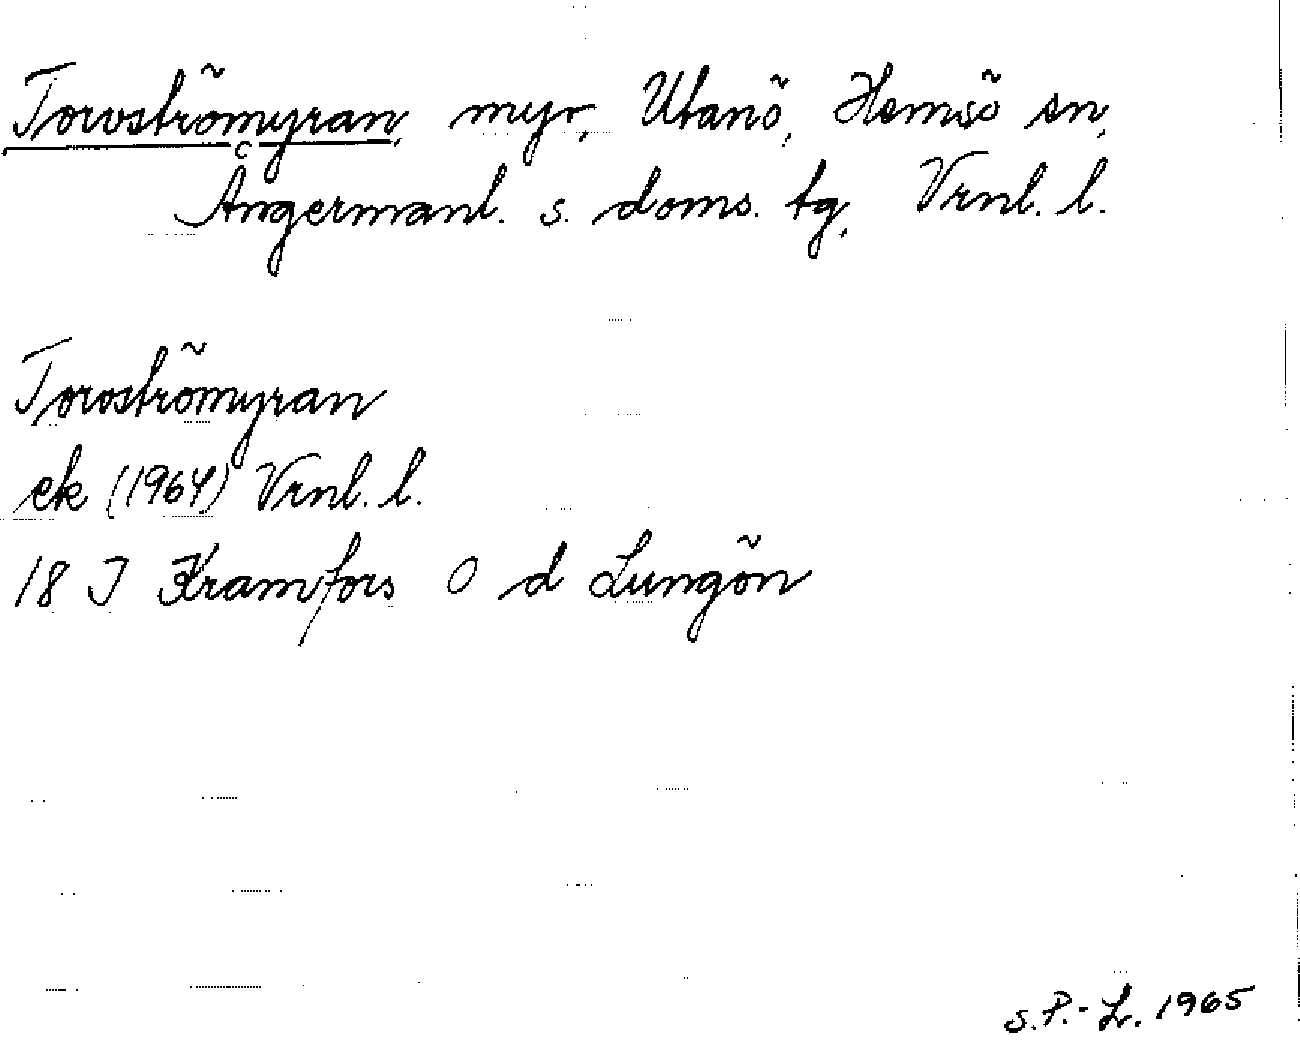 Torvströmyran, myr, Utanö, Hemsö sn,
Ångermanl. s. doms. tg, Vrnl. l.
Torvströmyran
ek (1964) Vrnl. l.
18 I Kramfors O d Lungön
S.P.-L. 1965